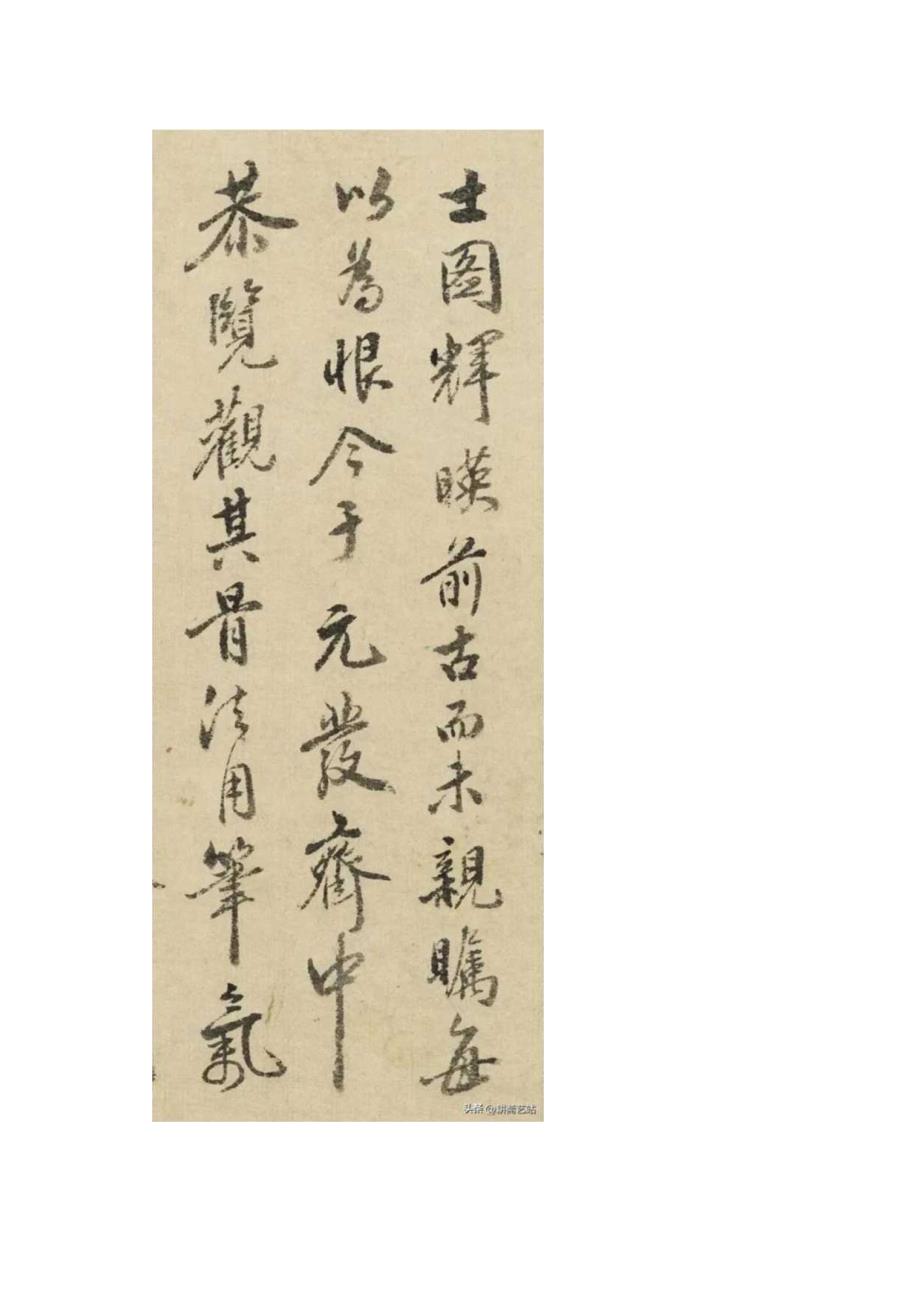 士圖輝暎前古而未親矚每
以為恨今于元發齋中
恭覽觀其骨法用筆氣
头条 @耕菑艺站